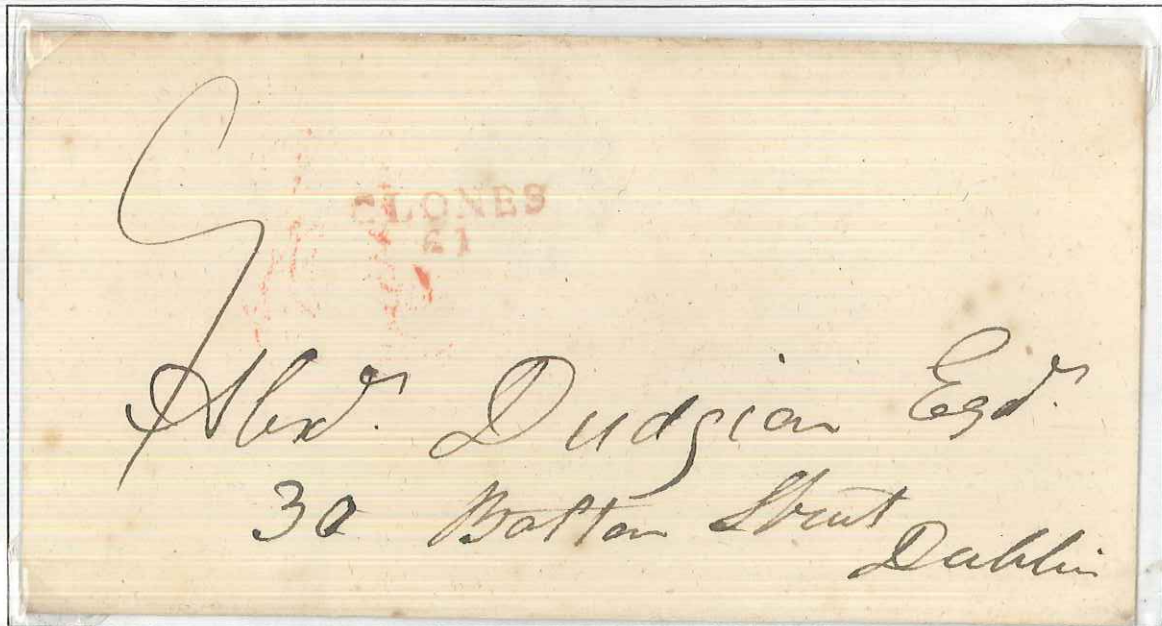 CLONES
61
Alexr. Dudgeon Esqr.
30 Bolton Street
Dublin